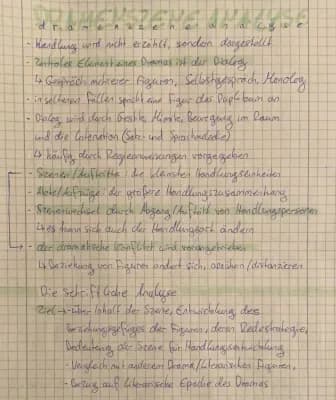 DRAMENSZENE ANALYSE
dramenszenenanalyse
- Handlung wird nicht erzählt, sondern dargestellt
- zentrales Element eines Dramas ist der Dialog
↳ Gespräch mehrerer Figuren, Selbstgespräch, Monolog
- in selteren Fällen spricht eine Figur das Publikum an
- Dialog wird durch Gestik, Mimik, Bewegung im Raum
und die Intonation (Satz- und Sprachmelodie)
↳ häufig durch Regieanweisungen vorgegeben
- Szenen/Auftritte: die kleinsten Handlungseinheiten
- Akte/Aufzüge: der größere Handlungszusammenhang
- Szenenwechsel durch Abgang/Auftritt von Handlungspersonen
↳ es kann sich auch der Handlungsort ändern
- der dramatische Konflikt wird vorangetrieben
↳ Beziehung von Figuren ändert sich, annähern/distanzieren
Die schriftliche Analyse
Ziel → über Inhalt der Szene, Entwicklung des
Beziehungsgefüges der Figuren, deren Redestrategie,
Bedeutung der Szene für Handlungsentwicklung
- Vergleich mit anderem Drama/literarischen Figuren,
- Bezug auf literarische Epoche des Dramas